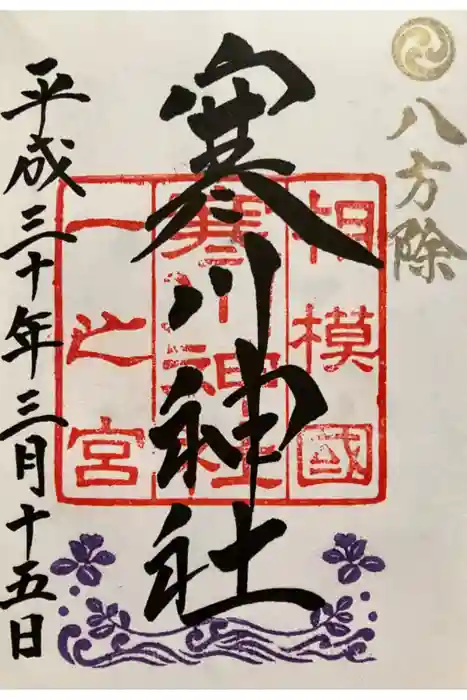 八方除
相模國
寒川神社
一之宮
寒川神社
平成三十年三月十五日